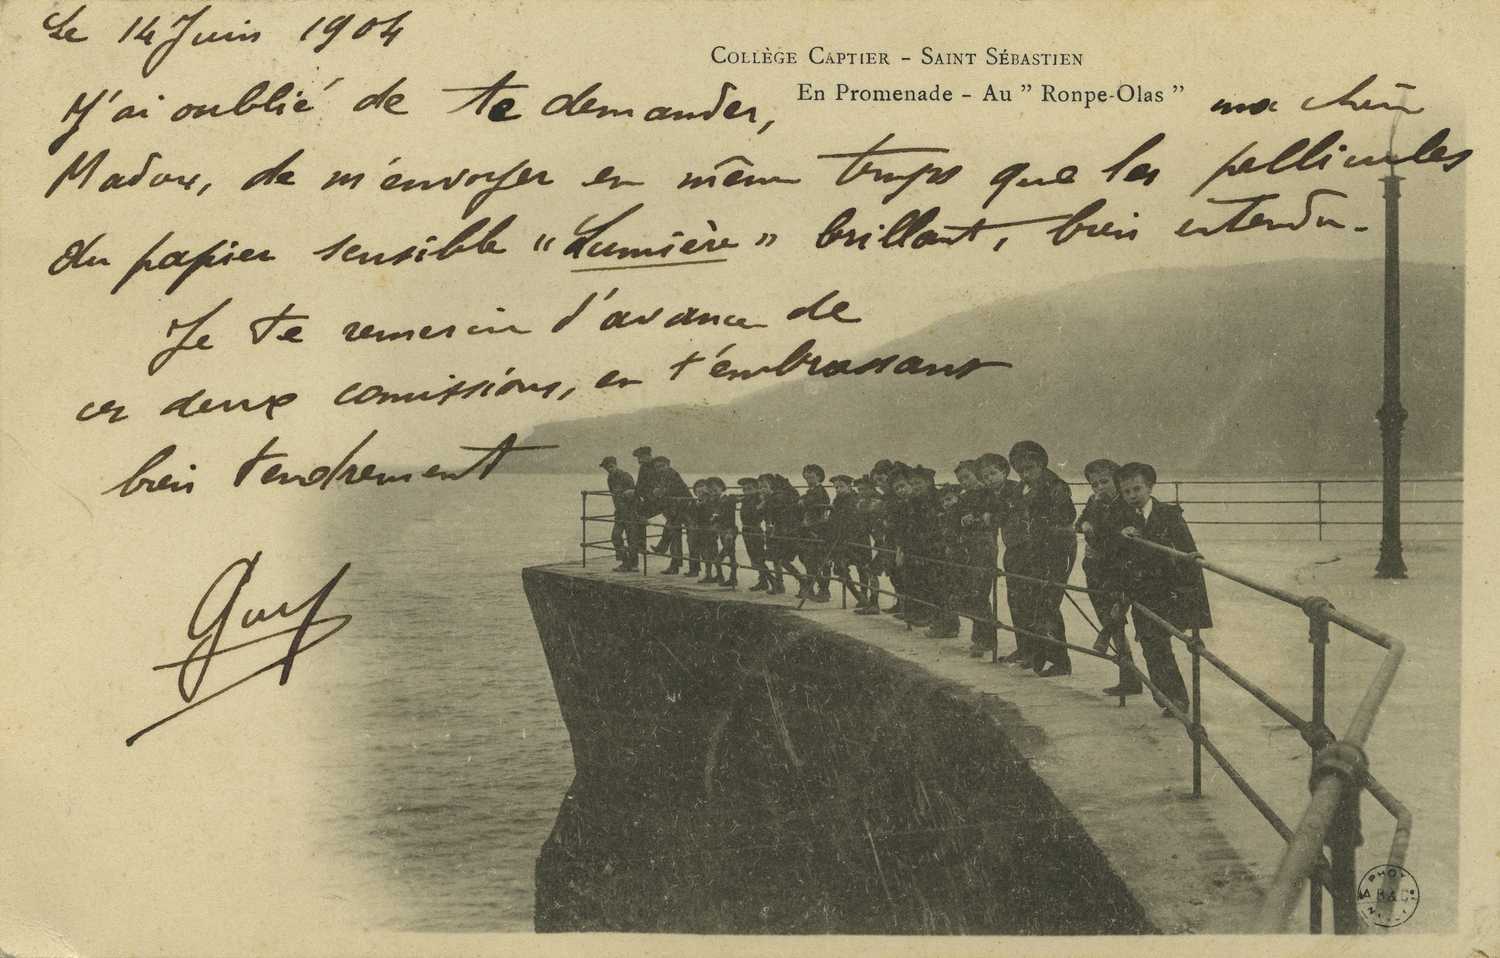 Le 14 Juin 1904
COLLÈGE CAPTIER - SAINT SÉBASTIEN
En Promenade - Au " Ronpe-Olas "
J'ai oublié de te demander, ma chère
Madou, de m'envoyer en même temps que les pellicules
du papier sensible "Lumière" brillant, bien entendu.
Je te remercie d'avance de
ces deux comissions, en t'embrassant
bien tendrement
Guy
PHOT
B & C